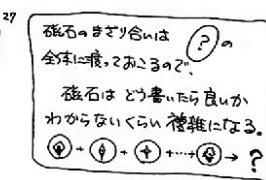 27
磁石のまざり合いは ? の
全体に渡っておこるので、
磁石は どう書いたら良いか
わからないくらい複雑になる。
+ + +…+ → ?